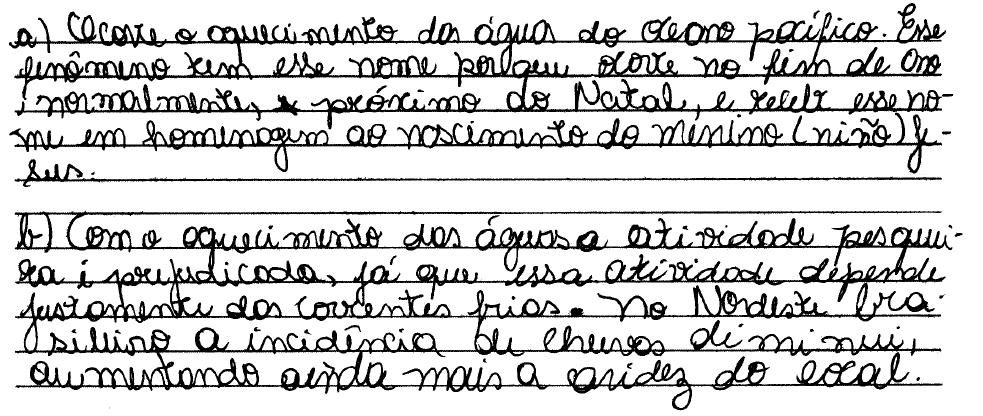 a) Ocorre o aquecimento das água do oceano pacífico. Esse
fenômeno tem esse nome porque ocorre no fim de ano
, normalmente, próximo do Natal, e recebe esse no-
me em homenagem ao nascimento do menino (niño) Je-
sus.
b) Com o aquecimento das águas a atividade pesquei-
ra é prejudicada, já que essa atividade depende
justamente das correntes frias. No Nordeste bra-
sileiro a incidência de chuvas diminui,
aumentando ainda mais a aridez do local.